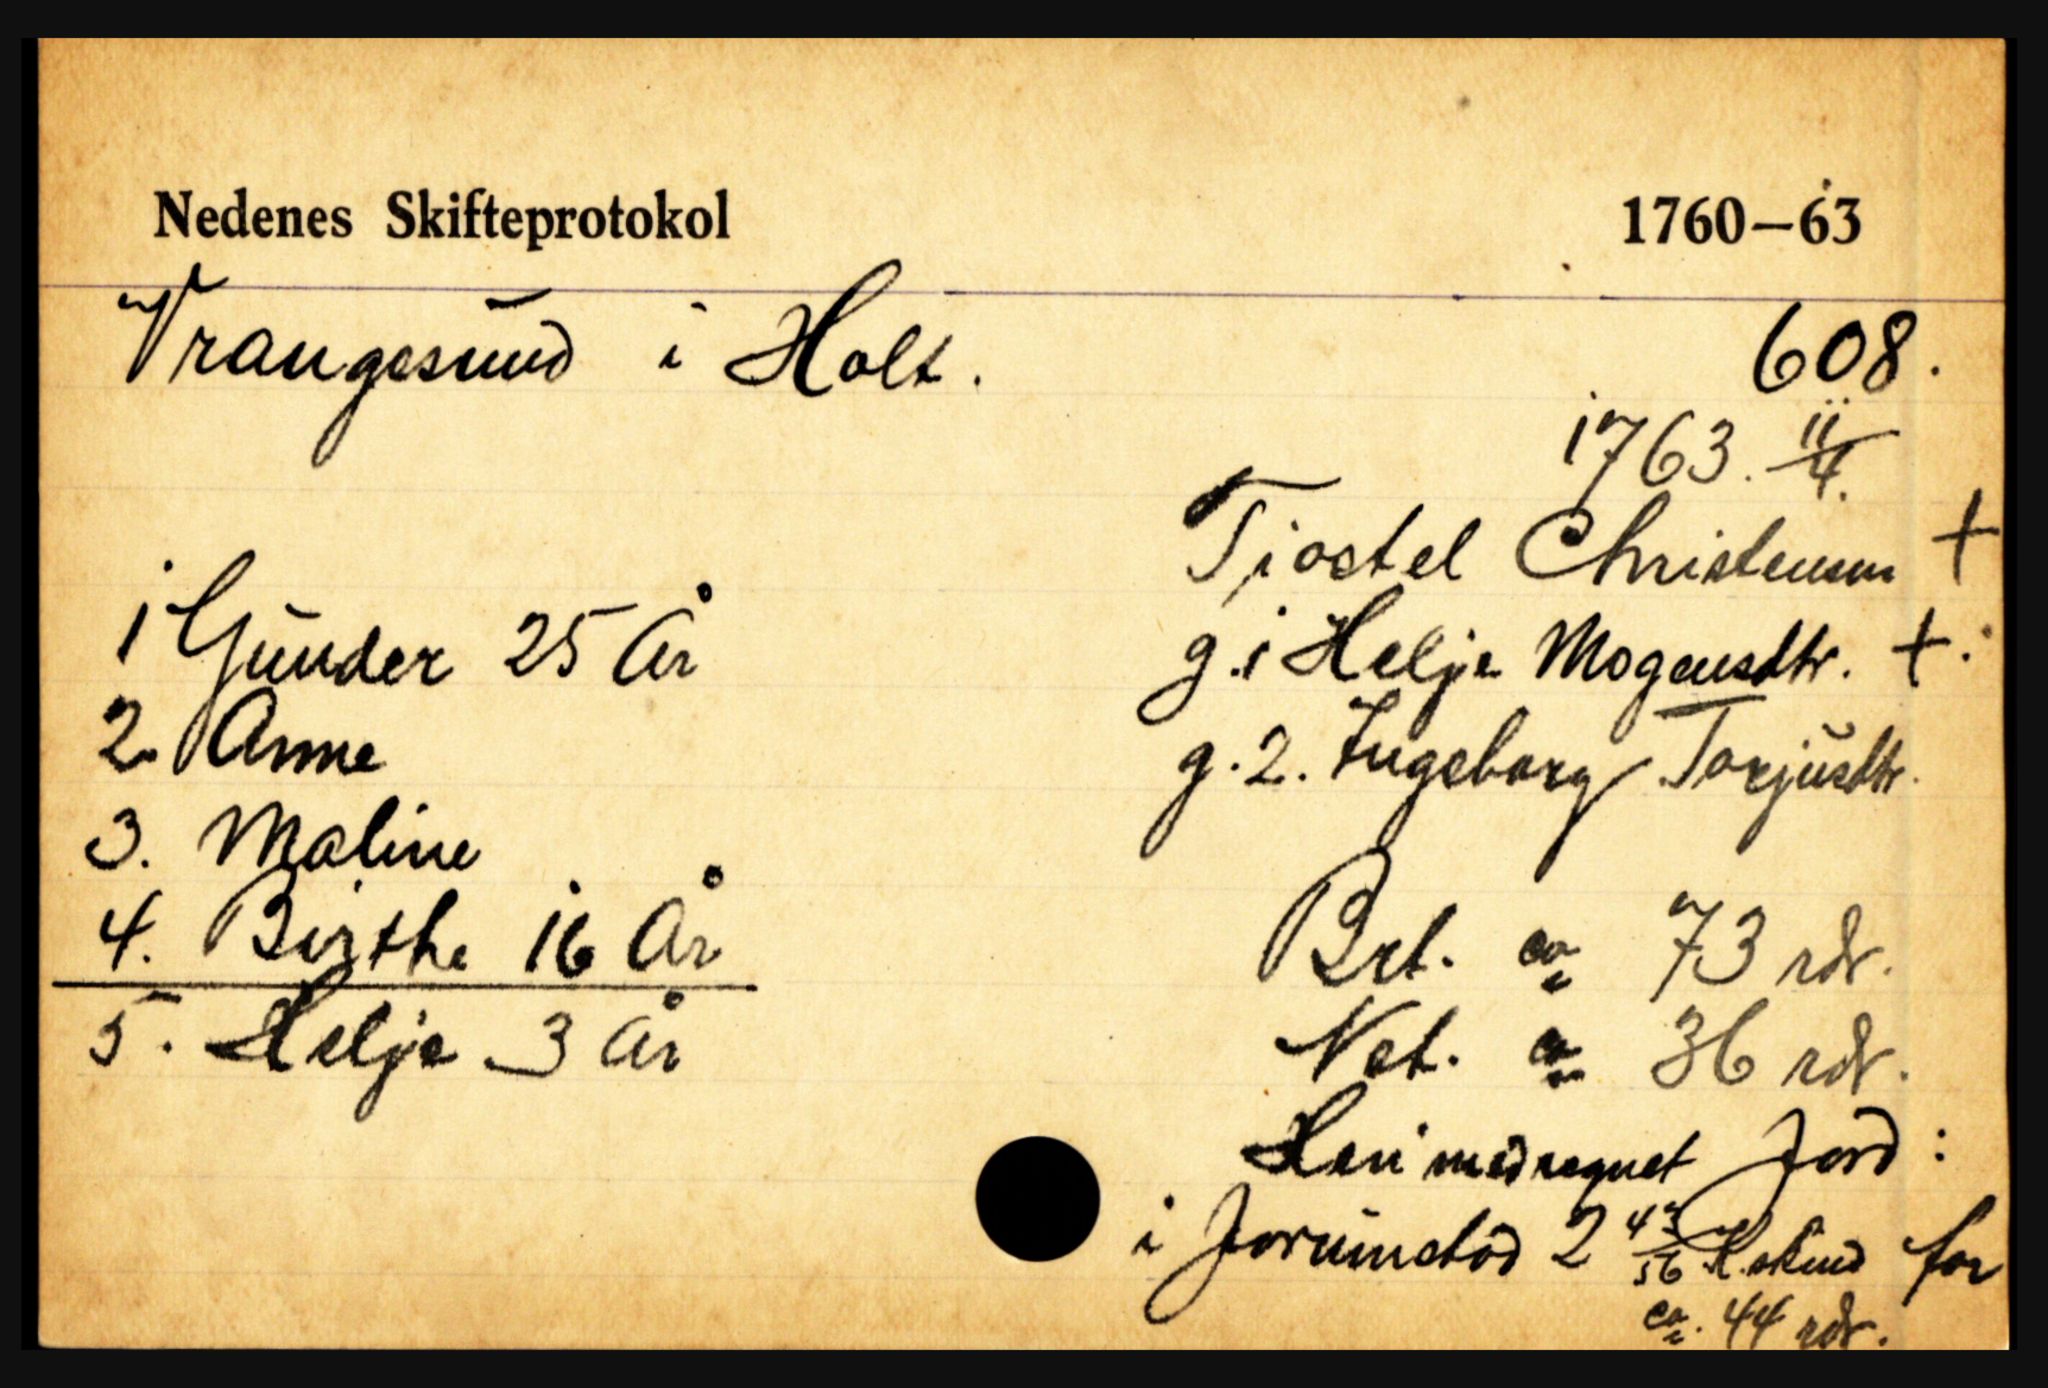 Nedenes Skifteprotokol 1760–63
Vrangesund i Holt. 608.
1763. 11/4.
Tjostel Christensen +
g.1 Helje Mogensdtr. +.
g.2. Ingeborg Torjusdtr.
1 Gunder 25 År
2. Anne
3. Maline
4. Birthe 16 År
5. Helje 3 År
Brt. ca 73 rdr.
Net. ca 36 rdr.
Heri medregnet Jord:
i 2 43/56 K.skind for
ca. 44 rdr.